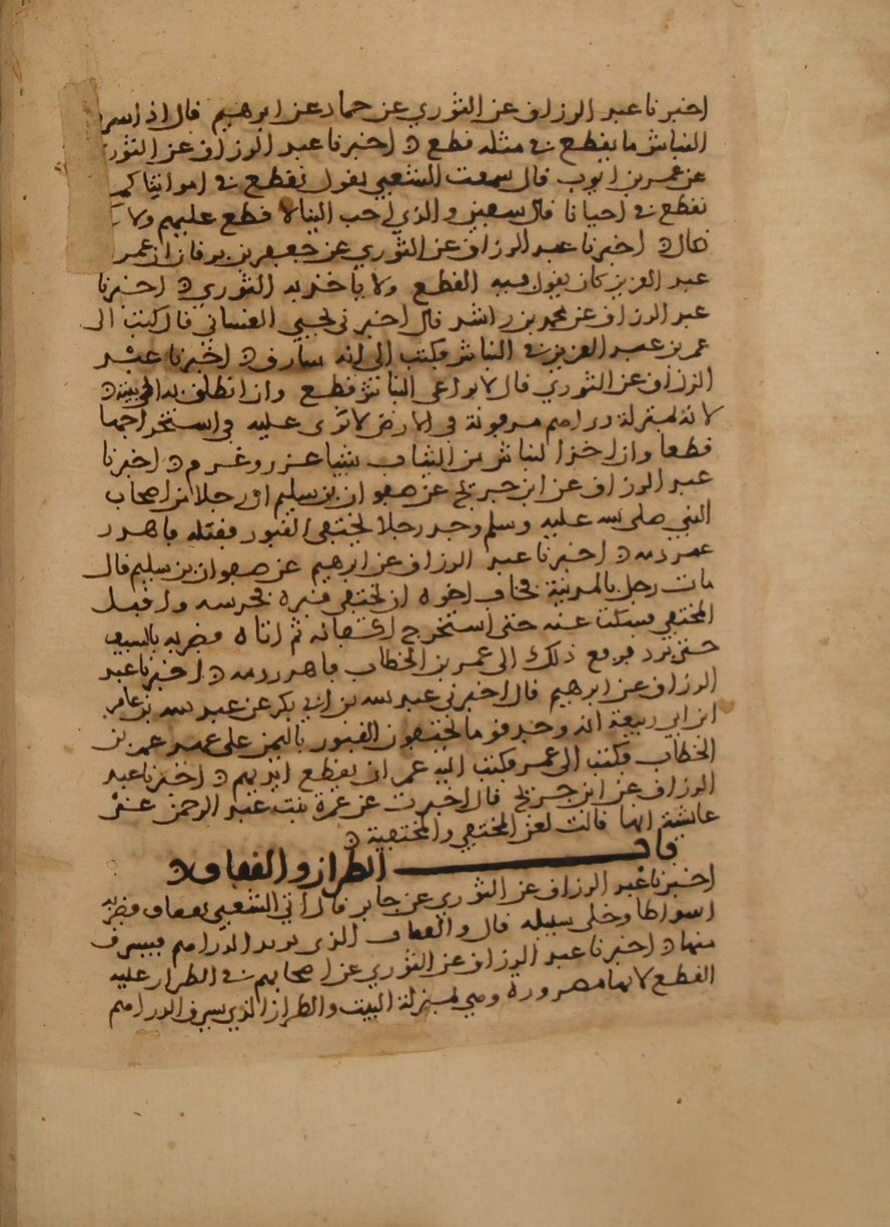 اخبرنا عبد الرزاق عن الثوري عن حماد عن ابرهيم قال اذا سرق
النباش ما يقطع في مثله قطع ه اخبرنا عبد الرزاق عن الثوري
عن عمر بن ايوب قال سمعت الشعبي يقول نقطع في امواتنا كما
نقطع في احيانا قال سفين والذي احب الينا قطع عليهم ولا
اخبرنا عبد الرزاق عن الثوري عن جعفر بن برقان ان عمر
عبد العزيز كان يقول فيه القطع ولا ياخذ به الثوري ه اخبرنا
عبد الرزاق عن محمد بن راشد قال اخبرني يحيى الغساني قال كتبت الى
عمر بن عبد العزيز في النباش فكتب الي انه سارق ه اخبرنا عبد
الرزاق عن الثوري قال لا يرا على النباش قطع وان انطلق به الى بيته
لانه بمنزلة دراهم مدفونة في الارض لا ترى عليه في استخراجها
قطعا وان اخذ النباش من الثياب شيا عزر وغرم ه اخبرنا
عبد الرزاق عن ابن جريج عن صفوان بن سليم ان رجلا من اصحاب
النبي صلى الله عليه وسلم وجد رجلا يختفي القبور فقتله فاهدر
عمر دمه ه اخبرنا عبد الرزاق عن ابرهيم عن صفوان بن سليم قال
مات رجل بالمدينة فخاف اخوه ان يختفي قبره فحرسه واقبل
المختفي فسكت عنه حتى استخرج اكفانه ثم اتاه فضربه بالسيف
حتى برد فرفع ذلك الى عمر بن الخطاب فاهدر دمه ه اخبرنا عبد
الرزاق عن ابرهيم قال اخبرني عبد الله بن ابي بكر عن عبد الله بن عامر
ابن ابي ربيعة انه وجد قوما يختفون القبور باليمن على عهد عمر بن
الخطاب فكتب الى عمر فكتب اليه عمر ان يقطع ايديهم ه اخبرنا عبد
الرزاق عن ابن جريج قال اخبرت عن عمرة بنت عبد الرحمن عن
عائشة انها قالت لعن المختفي والمختفية ه
باب الطرار والقفاف ه
اخبرنا عبد الرزاق عن الثوري عن جابر قال اتي الشعبي بقفاف فضربه
اسواطا وخلى سبيله قال والقفاف الذي يريد الدراهم فيسرق
منها ه اخبرنا عبد الرزاق عن الثوري عن اصحابهم في الطرار عليه
القطع لانها مصرورة وهي بمنزلة البيت والطرار الذي يسرق الدراهم